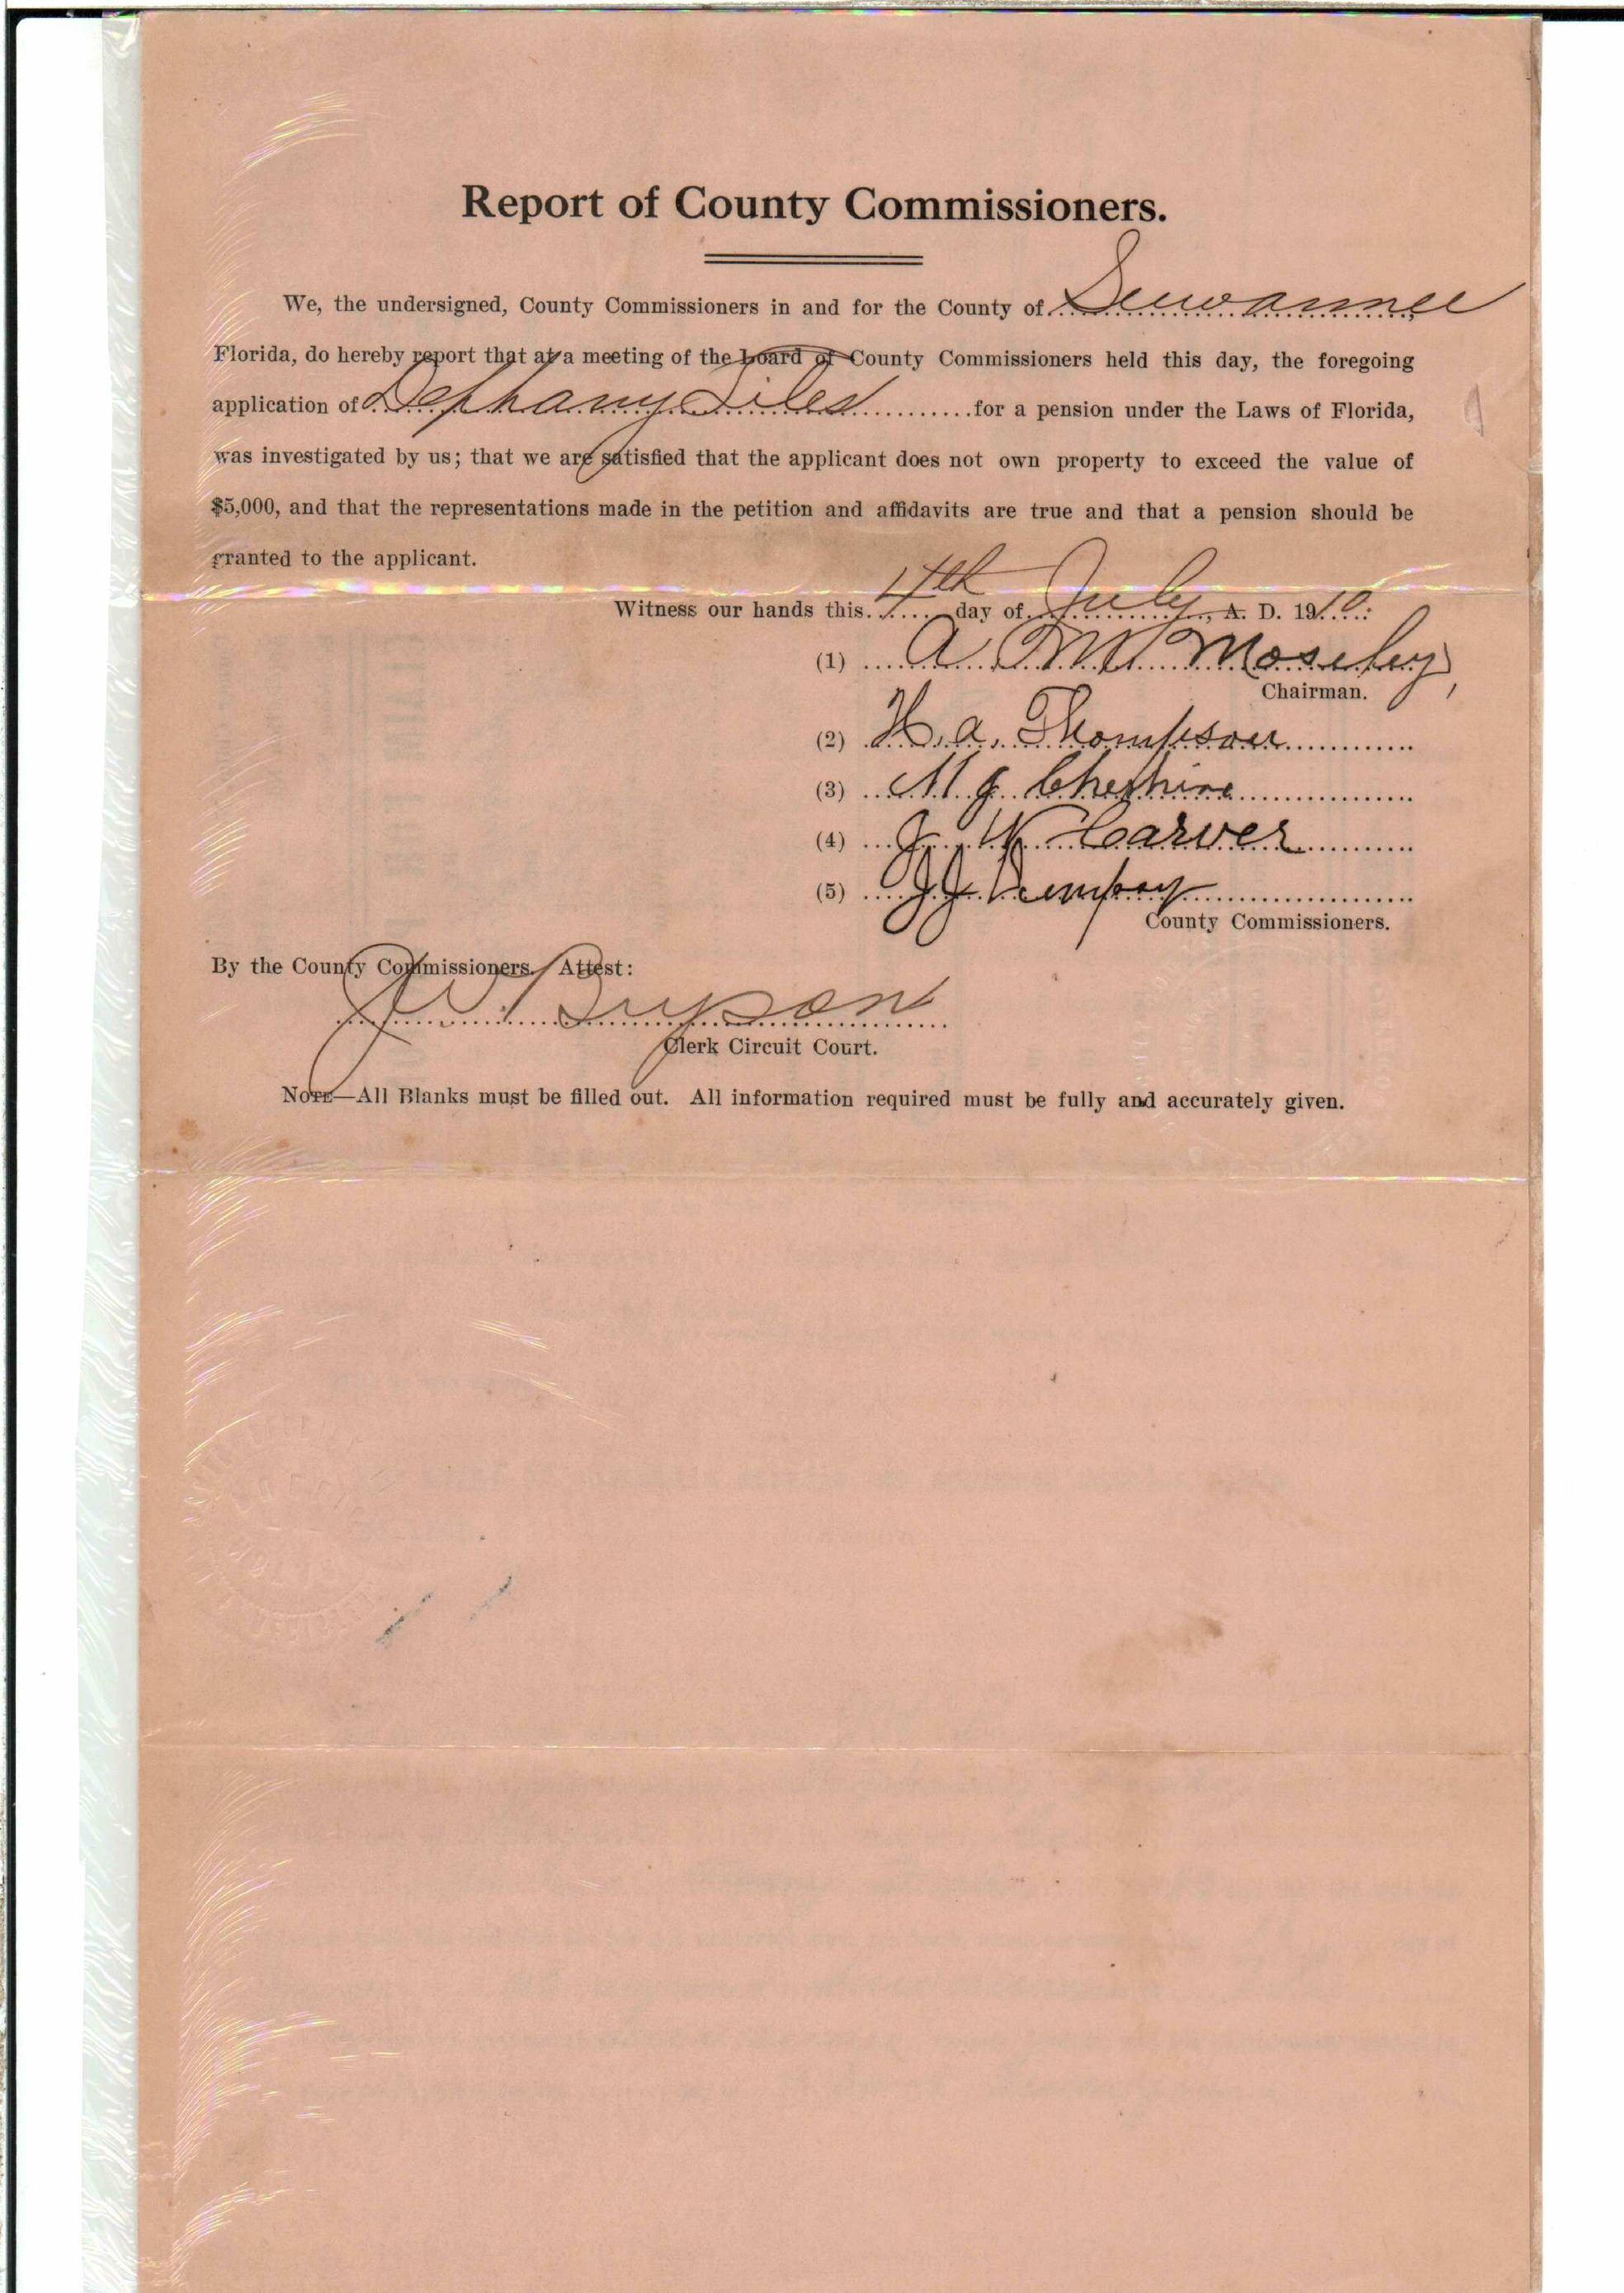 Report of County Commissioners.
We, the undersigned, County Commissioners in and for the County of Suwannee
Florida, do hereby report that at a meeting of the board of County Commissioners held this day, the foregoing
application of Dephany Giles for a pension under the Laws of Florida,
was investigated by us; that we are satisfied that the applicant does not own property to exceed the value of
$5,000, and that the representations made in the petition and affidavits are true and that a pension should be
granted to the applicant.
Witness our hands this 4th day of July, A. D. 1910.
(1) A M Moseley,
Chairman.
(2) H. A. Thompson
(3) M J Cheshire
(4) J. W. Carver
(5) J J
County Commissioners.
By the County Commissioners. Attest:
J. W. Bryson
Clerk Circuit Court.
NOTE—All Blanks must be filled out. All information required must be fully and accurately given.